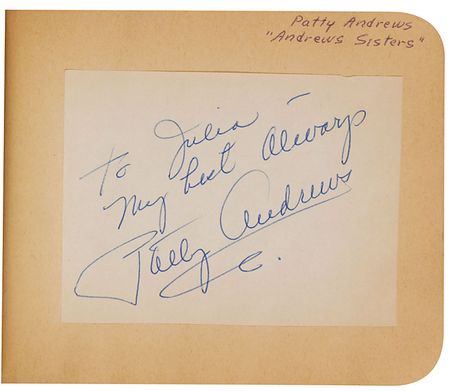 Patty Andrews
"Andrews Sisters"
To Julia –
My best Always
Patty Andrews